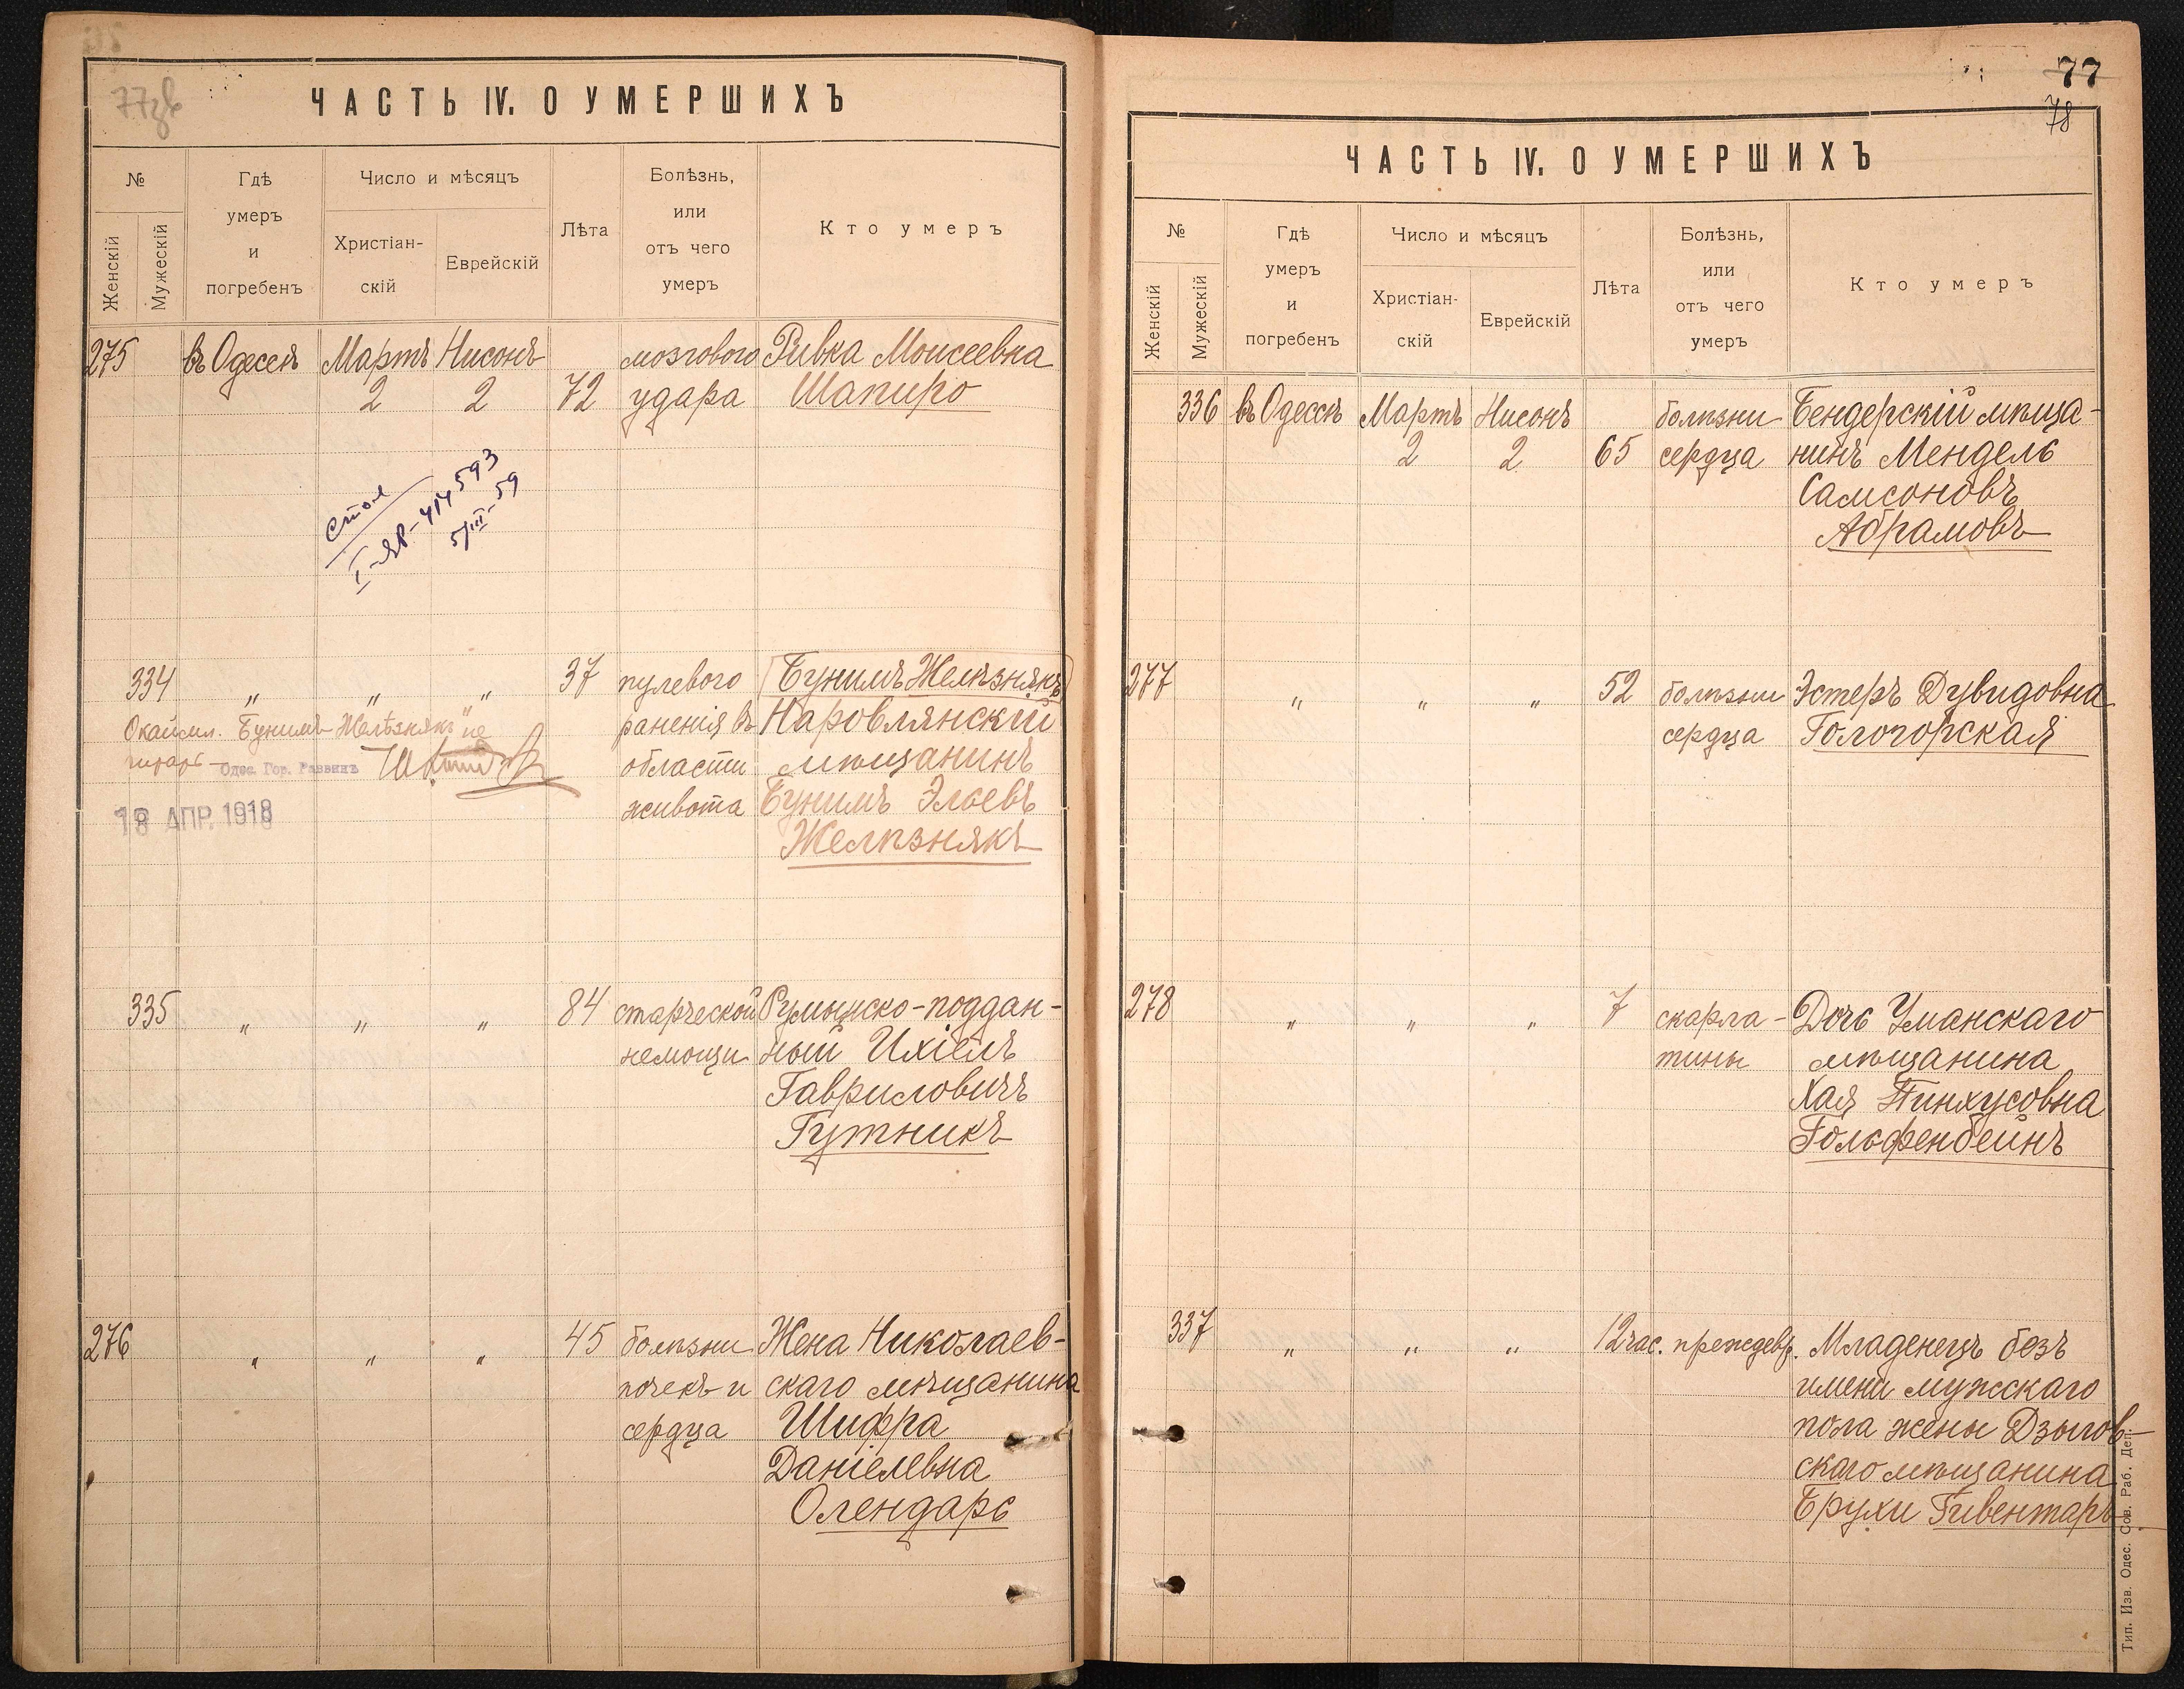 77зв
ЧАСТЬ IV. О УМЕРШИХЪ
№
Женскій
Мужескій
Гдѣ
умеръ
и
погребенъ
Число и мѣсяцъ
Христіан-
скій
Еврейскій
Лѣта
Болѣзнь,
или
отъ чего
умеръ
Кто умеръ
275 въ Одессѣ Мартъ Нисонъ мозгового Ривка Моисеевна
2 2 72 удара Шапиро
стол
I-ЯР-414593
5/III-59
334 " " " 37 пулевого Бунимъ Желѣзнякъ
раненія въ Наровлянскій
области мѣщанинъ
живота Бунимъ Элевъ
Желѣзнякъ
Окаймл. "Бунимъ Желѣзнякъ" не
читать
Одес. Гор. Раввинъ
18 АПР. 1918
335 " " " 84 старческой Румынско-поддан-
немощи ный Ихіель
Гавриловичъ
Гутникъ
276 " " " 45 болѣзни Жена Николаев-
почекъ и скаго мѣщанина
сердца Шифра
Даніелевна
Олендарь
77
78
ЧАСТЬ IV. О УМЕРШИХЪ
№
Женскій
Мужескій
Гдѣ
умеръ
и
погребенъ
Число и мѣсяцъ
Христіан-
скій
Еврейскій
Лѣта
Болѣзнь,
или
отъ чего
умеръ
Кто умеръ
336 въ Одессѣ Мартъ Нисонъ болѣзни Бендерскій мѣща-
2 2 65 сердца нинъ Мендель
Самсоновъ
Абрамовъ
277 " " " 52 болѣзни Эстеръ Дувидовна
сердца Гологорская
278 " " " 7 скарла- Дочь Уманскаго
тины мѣщанина
Хая Пинхусовна
Гольфенбейнъ
337 " " " 12 час. преждевр. Младенецъ безъ
имени мужскаго
пола жены Дзыгов-
скаго мѣщанина
Брухи Гивентаръ
Тип. Изв. Одес. Сов. Раб. Деп.